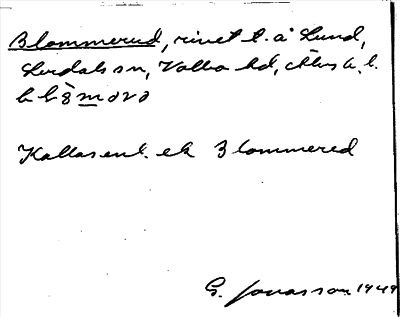 Blommerud, rivet t. å Lund,
Lerdals sn, Valbo hd, Älvsb. l.
Kallas enl. ek Blommered
G. Jonasson 1949